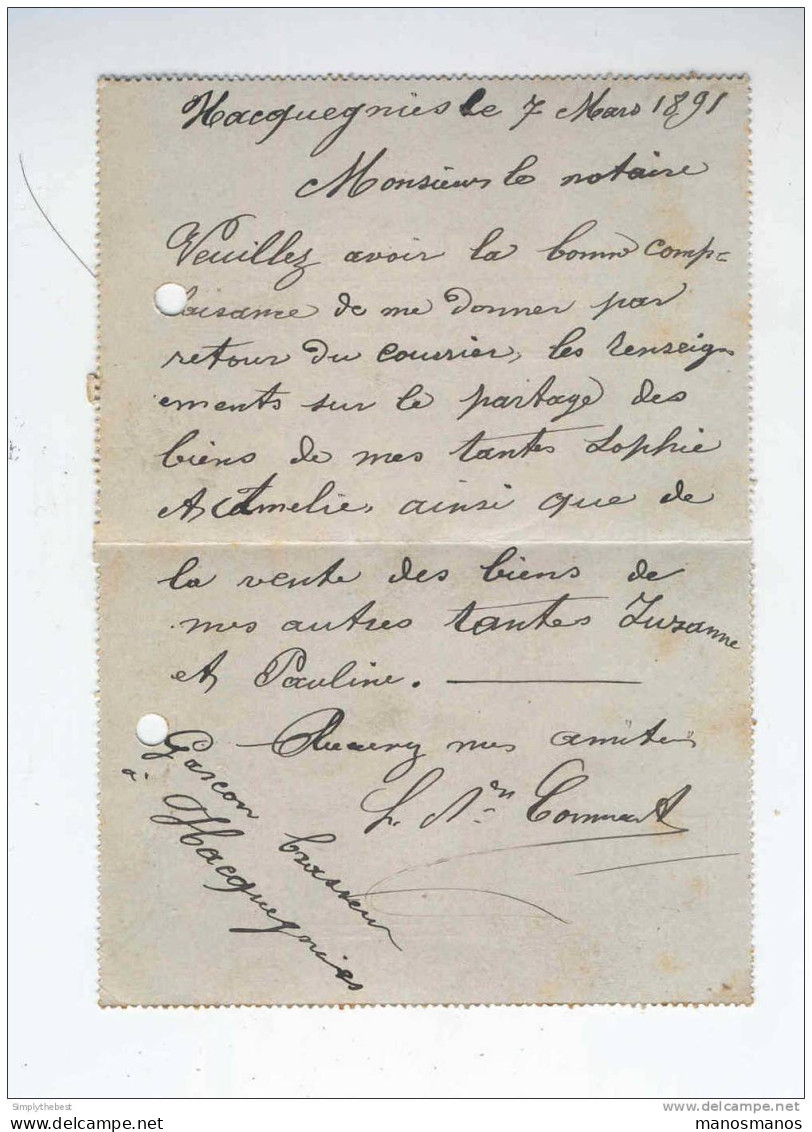 Hacquegnies le 7 Mars 1891
Monsieur le notaire
Veuillez avoir la bonne comp=
laisance de me donner par
retour du courrier, les renseign
ements sur le partage des
biens de mes tantes Sophie
et Amelie, ainsi que de
la vente des biens de
mes autres tantes Suzanne
et Pauline.
Recevez mes amitiés
Gascon brasseur
à Hacquegnies
Simplythebest
delcampe.net
manosmanos